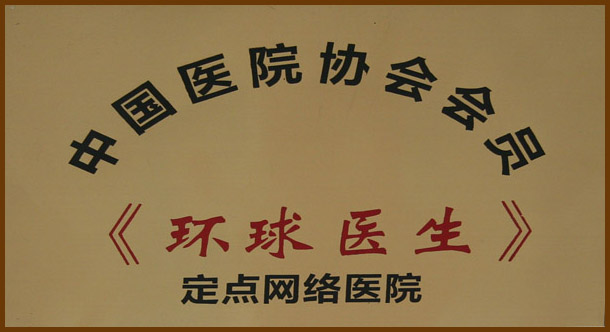 中国医院协会会员
《环球医生》
定点网络医院